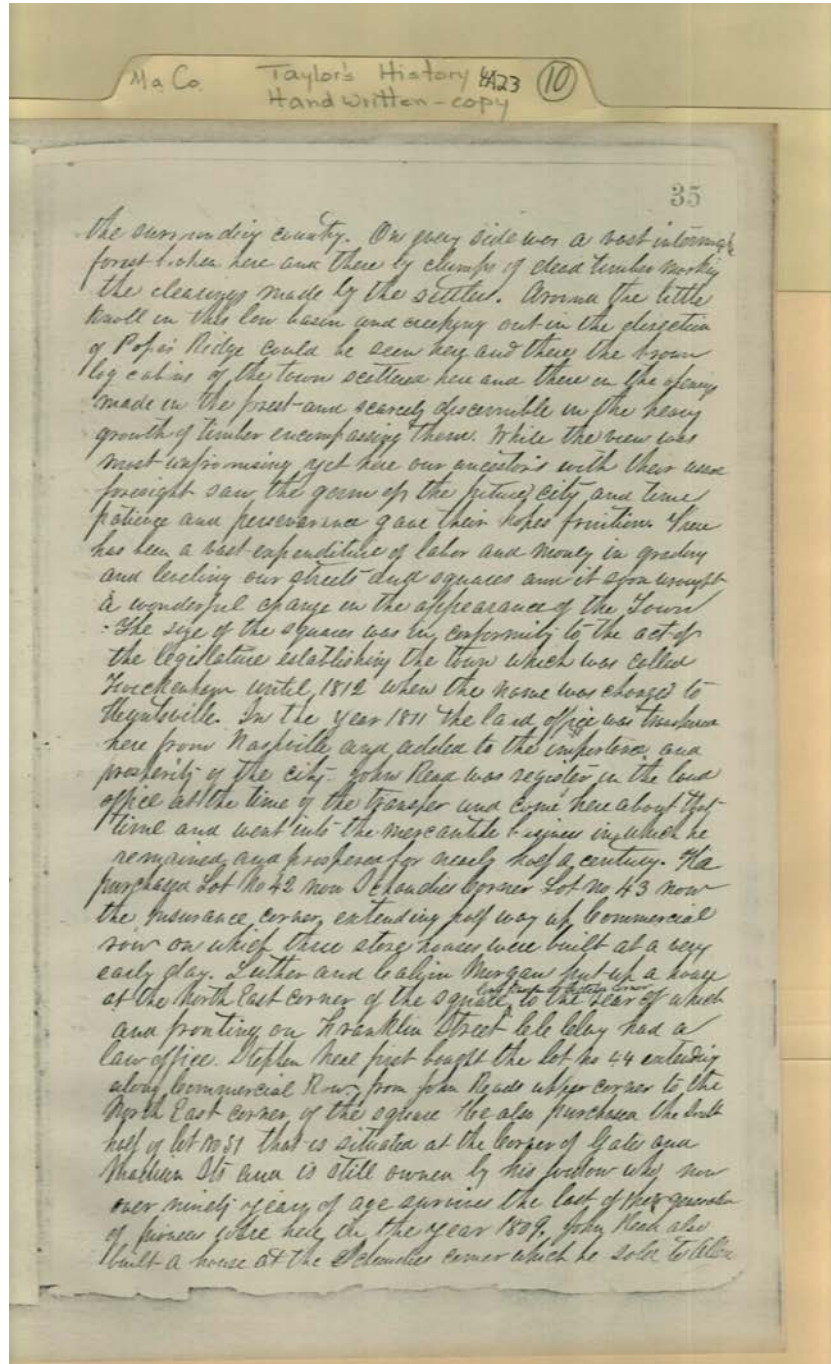 Ma Co. Taylor's History 4A23 10
Handwritten - copy
35
the surrounding county. On every side was a vast
forest broken here and there by clumps of dead timber marking
the clearings made by the settlers. Around the little
knoll in this low basin and creeping out in the direction
of Popes Ridge could be seen here and there the brown
log cabins of the town scattered here and there in the openings
made in the forest and scarcely discernible in the heavy
growth of timber encompassing them. While the view was
most unpromising yet here our ancestors with their
foresight saw the germ of the future city and time
patience and perseverance gave their hopes fruition. There
has been a vast expenditure of labor and money in grading
and leveling our streets and squares and it soon wrought
a wonderful change in the appearance of the Town
The size of the squares was in conformity to the act of
the legislature establishing the town which was called
Twickenham until 1812 when the name was changed to
Huntsville. In the year 1811 the land office was transferred
here from Nashville and added to the importance and
prosperity of the city. John Read was register in the land
office at the time of the transfer and came here about that
time and went into the mercantile business in which he
remained and prospered for nearly half a century. He
purchased Lot No 42 now Schaudies Corner Lot no 43 now
the Insurance corner, extending half way up Commercial
row on which three store houses were built at a very
early day. Luther and Calvin Morgan put up a house
at the North East corner of the square, to the rear of which
and fronting on Franklin Street C.C. Clay had a
law office. Stephen Neal first bought the lot no 44 extending
along Commercial Row, from John Reads upper corner to the
North East corner of the square He also purchased the South
half of lot no 51 that is situated at the Corner of Gates and
Madison Sts and is still owned by his widow who now
over ninety years of age survives the last of the generation
of pioneers were here in the year 1809. John Read also
built a house at the Schaudies corner which he sold to Allen